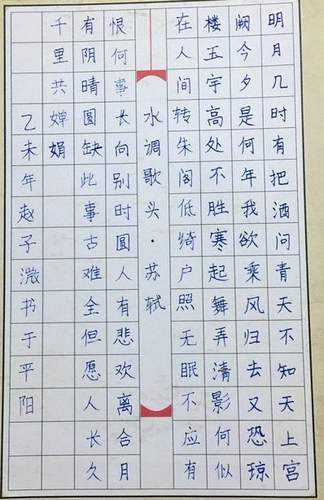 明月几时有把酒问青天不知天上宫
阙今夕是何年我欲乘风归去又恐琼
楼玉宇高处不胜寒起舞弄清影何似
在人间转朱阁低绮户照无眠不应有
水调歌头·苏轼
恨何事长向别时圆人有悲欢离合月
有阴晴圆缺此事古难全但愿人长久
千里共婵娟
乙未年赵子溦书于平阳